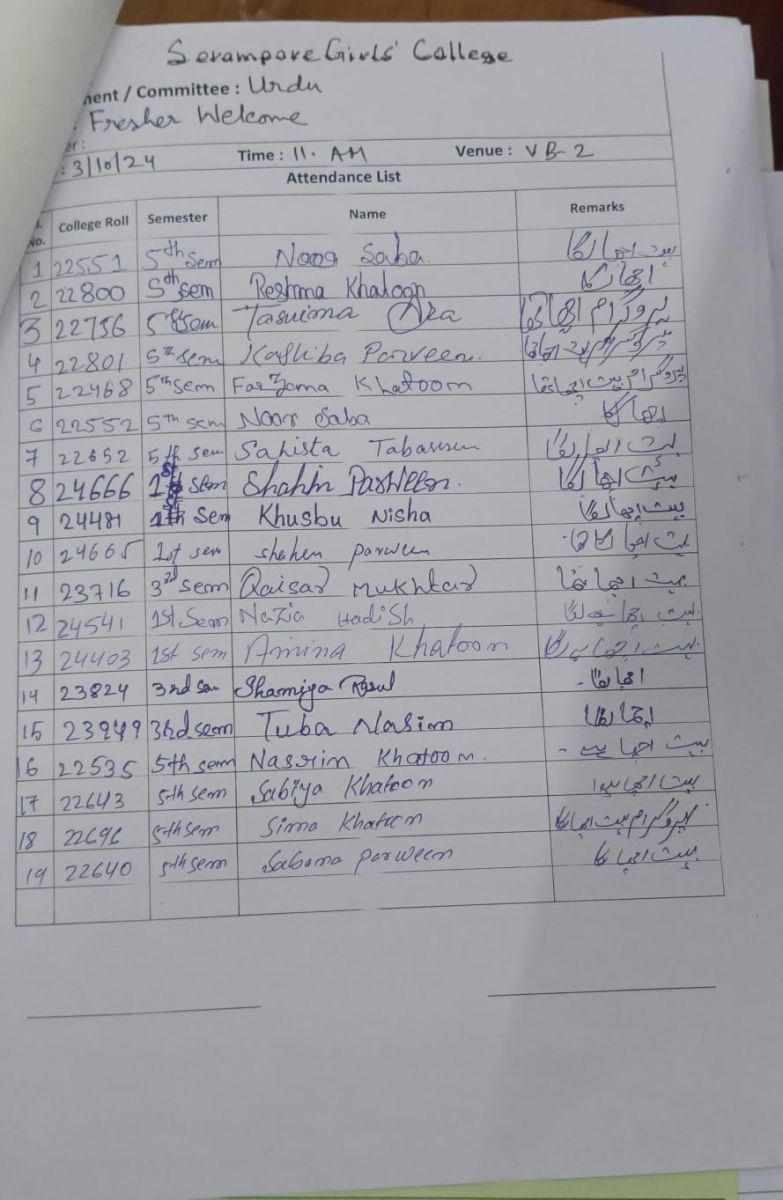 Serampore Girls' College
ment / Committee : Urdu
Fresher Welcome
er :
: 3/10/24 Time : 11. AM Venue : VB-2
Attendance List
No. College Roll Semester Name Remarks
1 22551 5th Sem Noor Saba. بہت اچھا لگا
2 22800 5th sem Reshma Khatoon اچھا لگا
3 22756 5th Sem Tasnima Ara پروگرام اچھا تھا
4 22801 5th sem Kashiba Parveen. پروگرام بہت اچھا تھا
5 22468 5th sem Farzana Khatoom پروگرام بہت اچھا تھا
6 22552 5th sem Noor Saba اچھا لگا
7 22652 5th sem Sahista Tabassum بہت اچھا لگا
8 24666 1st Sem Shahin Parveen. بہت اچھا لگا
9 24481 1th Sem Khusbu Nisha بہت اچھا لگا
10 24665 1st sem shahen parween بہت اچھا لگا
11 23716 3rd sem Qaisar Mukhtar بہت اچھا تھا
12 24541 1st Sem Nazia Hadish بہت اچھا لگا
13 24403 1st sem Amina Khatoom بہت اچھا لگا
14 23824 3rd sem Shamiya Rasul اچھا لگا -
15 23949 3rd sem Tuba Nasim اچھا لگا
16 22535 5th sem Nasrim Khatoom. بہت اچھا ہے -
17 22643 5th sem Sabiya Khatoon بہت اچھا
18 22696 5th sem Sima Khatoon پروگرام بہت اچھا لگا
19 22640 5th sem Sabana parween بہت اچھا لگا